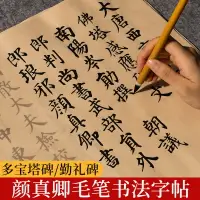 大唐西
佛塔感應
南陽岑勛撰朝議
郎判尚書武部員外
郎琅邪顏真卿書
多宝塔碑/勤礼碑
颜真卿毛笔书法字帖